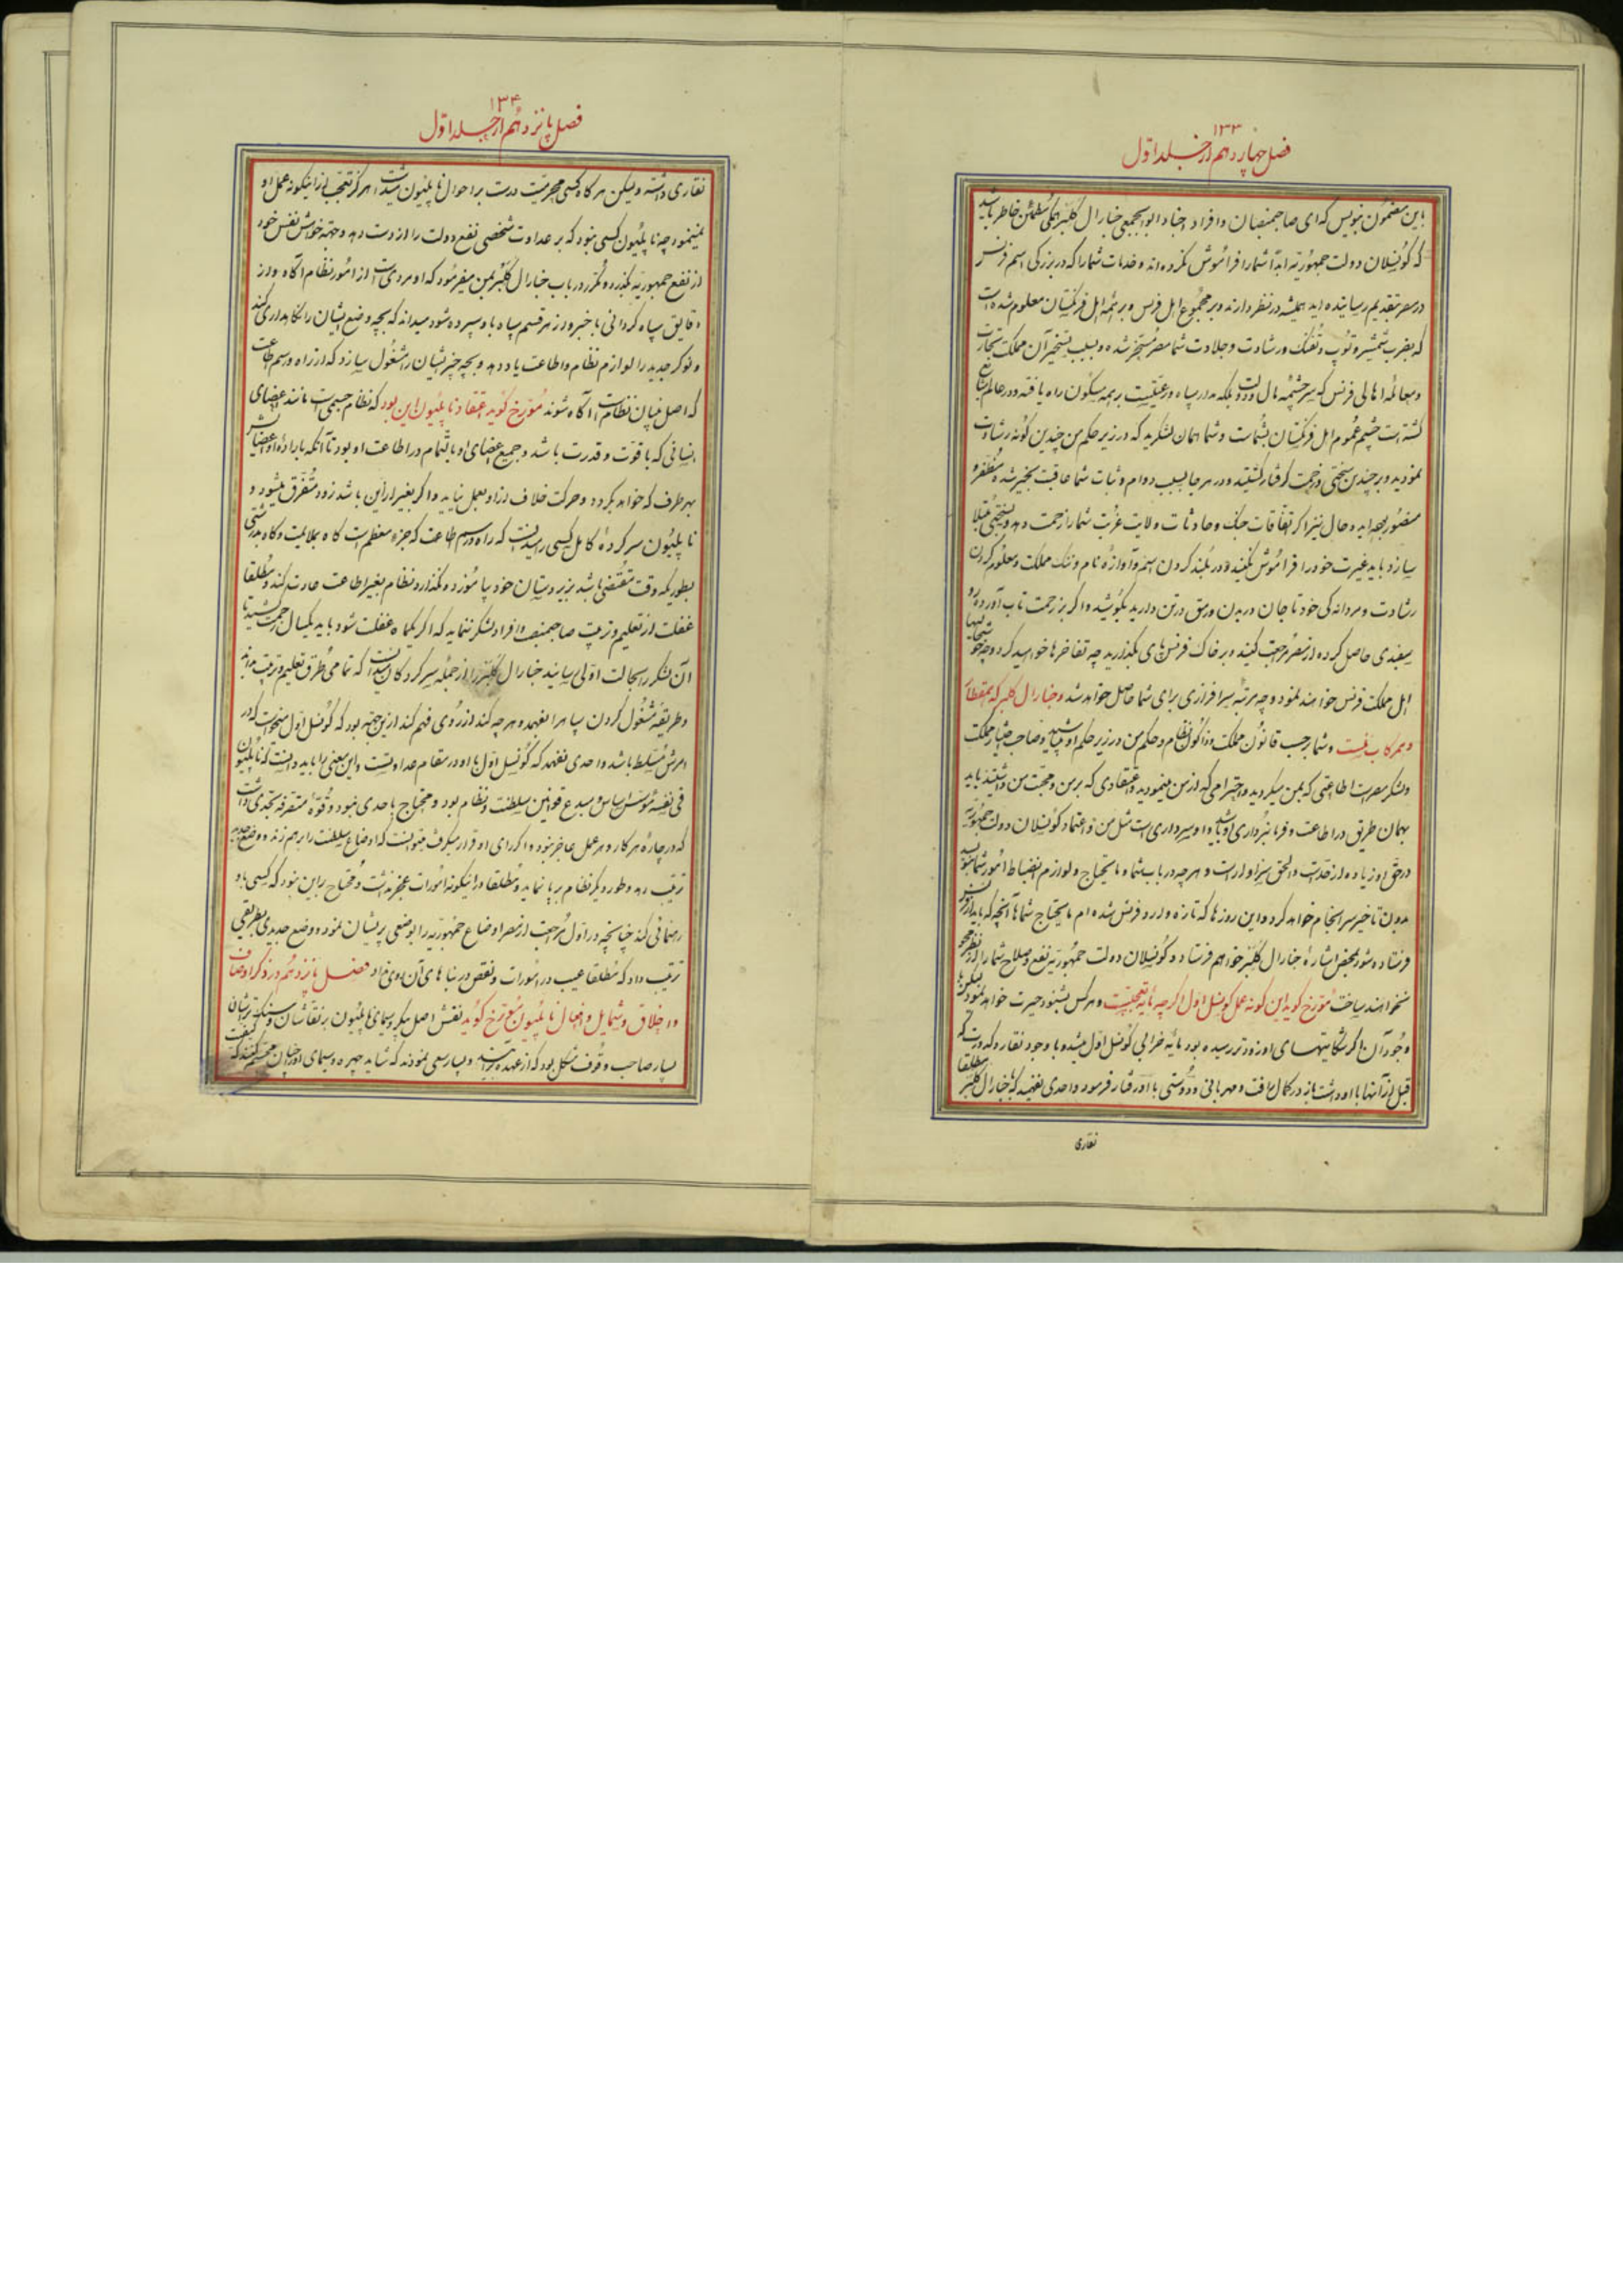 ۱۳۳
فصل چهاردهم از جلد اول
باین مضمون بنویس که ای صاحبمنصبان و افراد اجناد ابوابجمعی جنارال کلبر همگی مطمئن خاطر باشید
که کونسلان دولت جمهوریه ابداً شما را فراموش نکرده‌اند و خدمات شما را که در بزرگی اسم فرنس
در مصر بتقدیم رسانیده‌اید همیشه در نظر دارند و بر مجموع اهل فرنس و بر همه اهل فرنگستان معلوم شده است
که بضرب شمشیر و توپ و تفنگ و رشادت و جلادت شما مصر مسخر شده و بسبب تسخیر آن مملکت تجارت
و معامله اهالی فرنس که سرچشمه مال دولت بلکه مدار سپاه و رعیتست بر همه مسکون راه یافته و در عالم شایع
گشته است چشم عموم اهل فرنگستان بشماست و شما همان لشکرید که در زیر حکم من چندین گونه رشادت
نمودید و بر چندین سختی و زحمت گرفتار گشتید و در هر جا بسبب دوام و ثبات شما عاقبت بخیر شده مظفر و
منصور بوده‌اید و حال نیز اگر اتفاقات جنگ و حادثات ولایت غربت شما را زحمت دهد و بسختی مبتلا
سازد باید غیرت خود را فراموش نکنید و در بلند کردن اسم و آوازه نام و ننگ مملکت و معلوم کردن
رشادت و مردانه‌گی خود تا جان در بدن و رمق در تن دارید بکوشید و اگر بر زحمت تاب آورده رو
سفیدی حاصل کرده از مصر مراجعت کنید و بر خاک فرنس پای بگذارید چه تفاخرها خواهید کرد و چه خواهشها
اهل مملکت فرنس خواهند نمود و چه مرتبه سرافرازی برای شما حاصل خواهد شد و جنارال کلبر که بمقطار
و همرکاب منست و شما بر حسب قانون مملکت و ذاکون نظام و حکم من در زیر حکم او میباشید و صاحب اختیار مملکت
و لشکر مصر است اطاعتی که بمن میکردید و احترامی که از من مینمودید و اعتقادی که بر من و محبت من داشتید باید
بهمان طریق در اطاعت و فرمانبرداری او باشید و او سرداری است مثل من و اعتماد کونسلان دولت جمهوریه
در حق او زیاده از حد است و الحق سزاوار است و هر چه در باب شما و مایحتاج و لوازم انضباط امور شما بنویسد
بدون تاخیر سرانجام خواهد کرد و این روزها که تازه وارد فرنس شده‌ام مایحتاج شما را آنچه که باید از فرنس
فرستاده شود بمحض اشاره جنارال کلبر خواهم فرستاد و کونسلان دولت جمهوریه نفع و صلاح شما را از نظر محو
نخواهند ساخت مورخ گوید این گونه عمل کونسل اول اگرچه مایه تعجبست و هر کس بشنود حیرت خواهد نمود لیکن با
وجود آن اگر شکایتهای او زودتر رسیده بود مایه خرابی کونسل اول میشد و با وجود نقار و کدورت که
قبل از آنها با او داشت باز در کمال رافت و مهربانی و دوستی با او رفتار فرمود و احدی نفهمید که با جنارال کلبر مطلقا
نقاری
۱۳۴
فصل پانزدهم از جلد اول
نقاری داشته و لیکن هر گاه کسی محرمیت درست بر احوال ناپلیون میداشت هرگز تعجب از اینگونه عمل او
نمینمود چه ناپلیون کسی نبود که بر عداوت شخصی نفع دولت را از دست دهد و بجهة خواهش نفس خود
از نفع جمهوریه بگذرد و مکرر در باب جنارال کلبر بمن میفرمود که او مردیست از امور نظام آگاه و از
دقایق سپاه گردانی باخبر و از هر قسم سپاه باو سپرده شود میداند که بچه وضع ایشان را نگاهداری کند
و نوکر جدید را لوازم نظام و اطاعت یاد دهد و بچه چیز ایشان را مشغول سازد که از راه و رسم اطاعت
که اصل بنیان نظام است آگاه شوند مورخ گوید اعتقاد ناپلیون این بود که نظام جسمی است مانند اعضای
انسانی که با قوت و قدرت باشد و جمیع اعضای او بالتمام در اطاعت او بود تا آنکه باراده او اعضایش
بهر طرف که خواهد بگردد و حرکت خلاف از او بعمل نیاید و اگر بغیر از این باشد زود متفرق میشود و
ناپلیون سر کرده کامل کسی را میدانست که راه و رسم اطاعت که جزء معظم است گاه بملایمت و گاه بدرشتی
بطوریکه وقت مقتضی باشد بزیردستان خود بیاموزد و نگذارد نظام بغیر اطاعت عادت کند و مطلقا
غفلت از تعلیم و تربیت صاحبمنصب و افراد لشکر ننماید که اگر یکماه غفلت شود باید یکسال زحمت کشید تا
آن لشکر را بحالت اولی رسانید جنارال کلبر را از جمله سرکردگان میدانست که تمامی طرق تعلیم و تربیت بداند
و طریقه مشغول کردن سپاه را بفهمد و هر چه کند از روی فهم کند از این جهة بود که کونسل اول میخواست که در
امرش مسلط باشد و احدی نفهمد که کونسل اول با او در مقام عداوتست و این معنی را باید دانست که ناپلیون
فی نفسه مؤسس اساس و مبدع قوانین سلطنت و نظام بود و محتاج باحدی نبود و قوه متصرفه بحدی داشت
که در چاره هر کار و هر عمل عاجز نبود و اگر رای او قرار میگرفت میتوانست که اوضاع سلطنت را برهم زند و وضع جدید
ترتیب دهد و طور دیگر نظام بر پا نماید و مطلقا در اینگونه امورات عجز نداشت و محتاج براین نبود که کسی باو
رهنمائی کند چنانچه در اول مراجعت از مصر اوضاع جمهوریه را بوضعی پریشان نموده و وضع جدیدی بطریقی
ترتیب داد که مطلقا عیب در امورات و نقص در بناهای آن روی نداد فصل پانزدهم در ذکر اوصاف
و اخلاق و شمایل و افعال ناپلیون مورخ گوید نقش اصل پیکر و سیمای ناپلیون بر نقاشان و سنگتراشان
بسیار صاحب وقوف مشکل بود که از عهده برآیند و بسیار سعی نمودند که شاید چهره و سیمای او را چنان مجسم کنند که